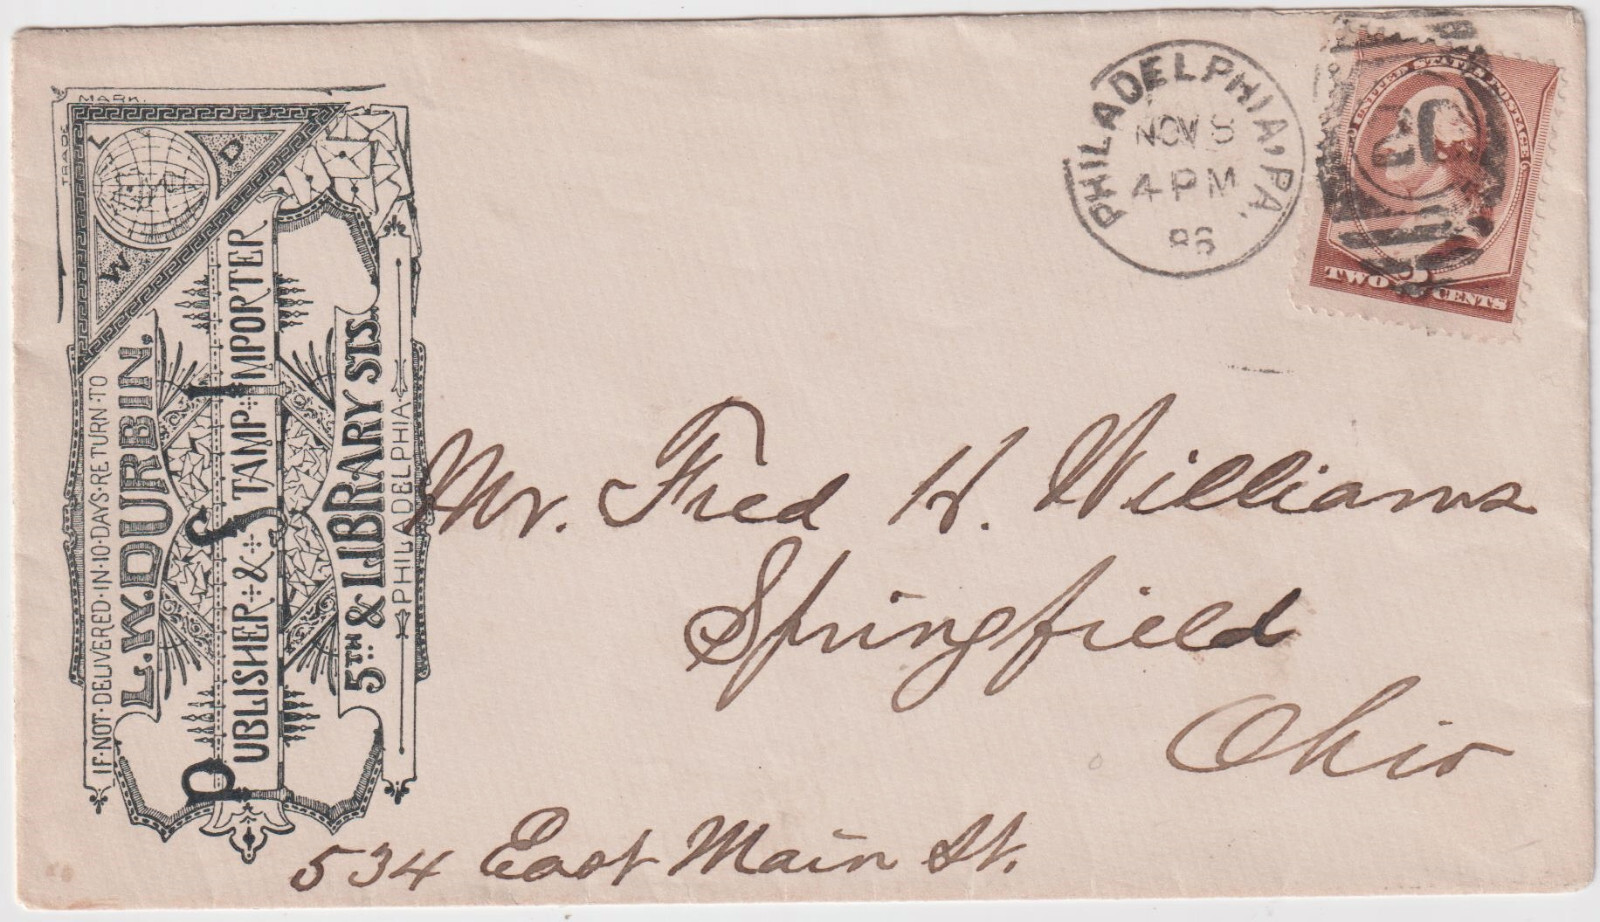 TRADE
MARK.
L
D
W
IF·NOT·DELIVERED·IN·10·DAYS·RETURN·TO
L.W. DURBIN,
PUBLISHER & STAMP IMPORTER
5TH & LIBRARY STS.
PHILADELPHIA
PHILADELPHIA, PA.
NOV 8
4 PM
86
UNITED STATES POSTAGE
20
TWO 2 CENTS
Mr. Fred H. Williams
Springfield
Ohio
534 East Main St.